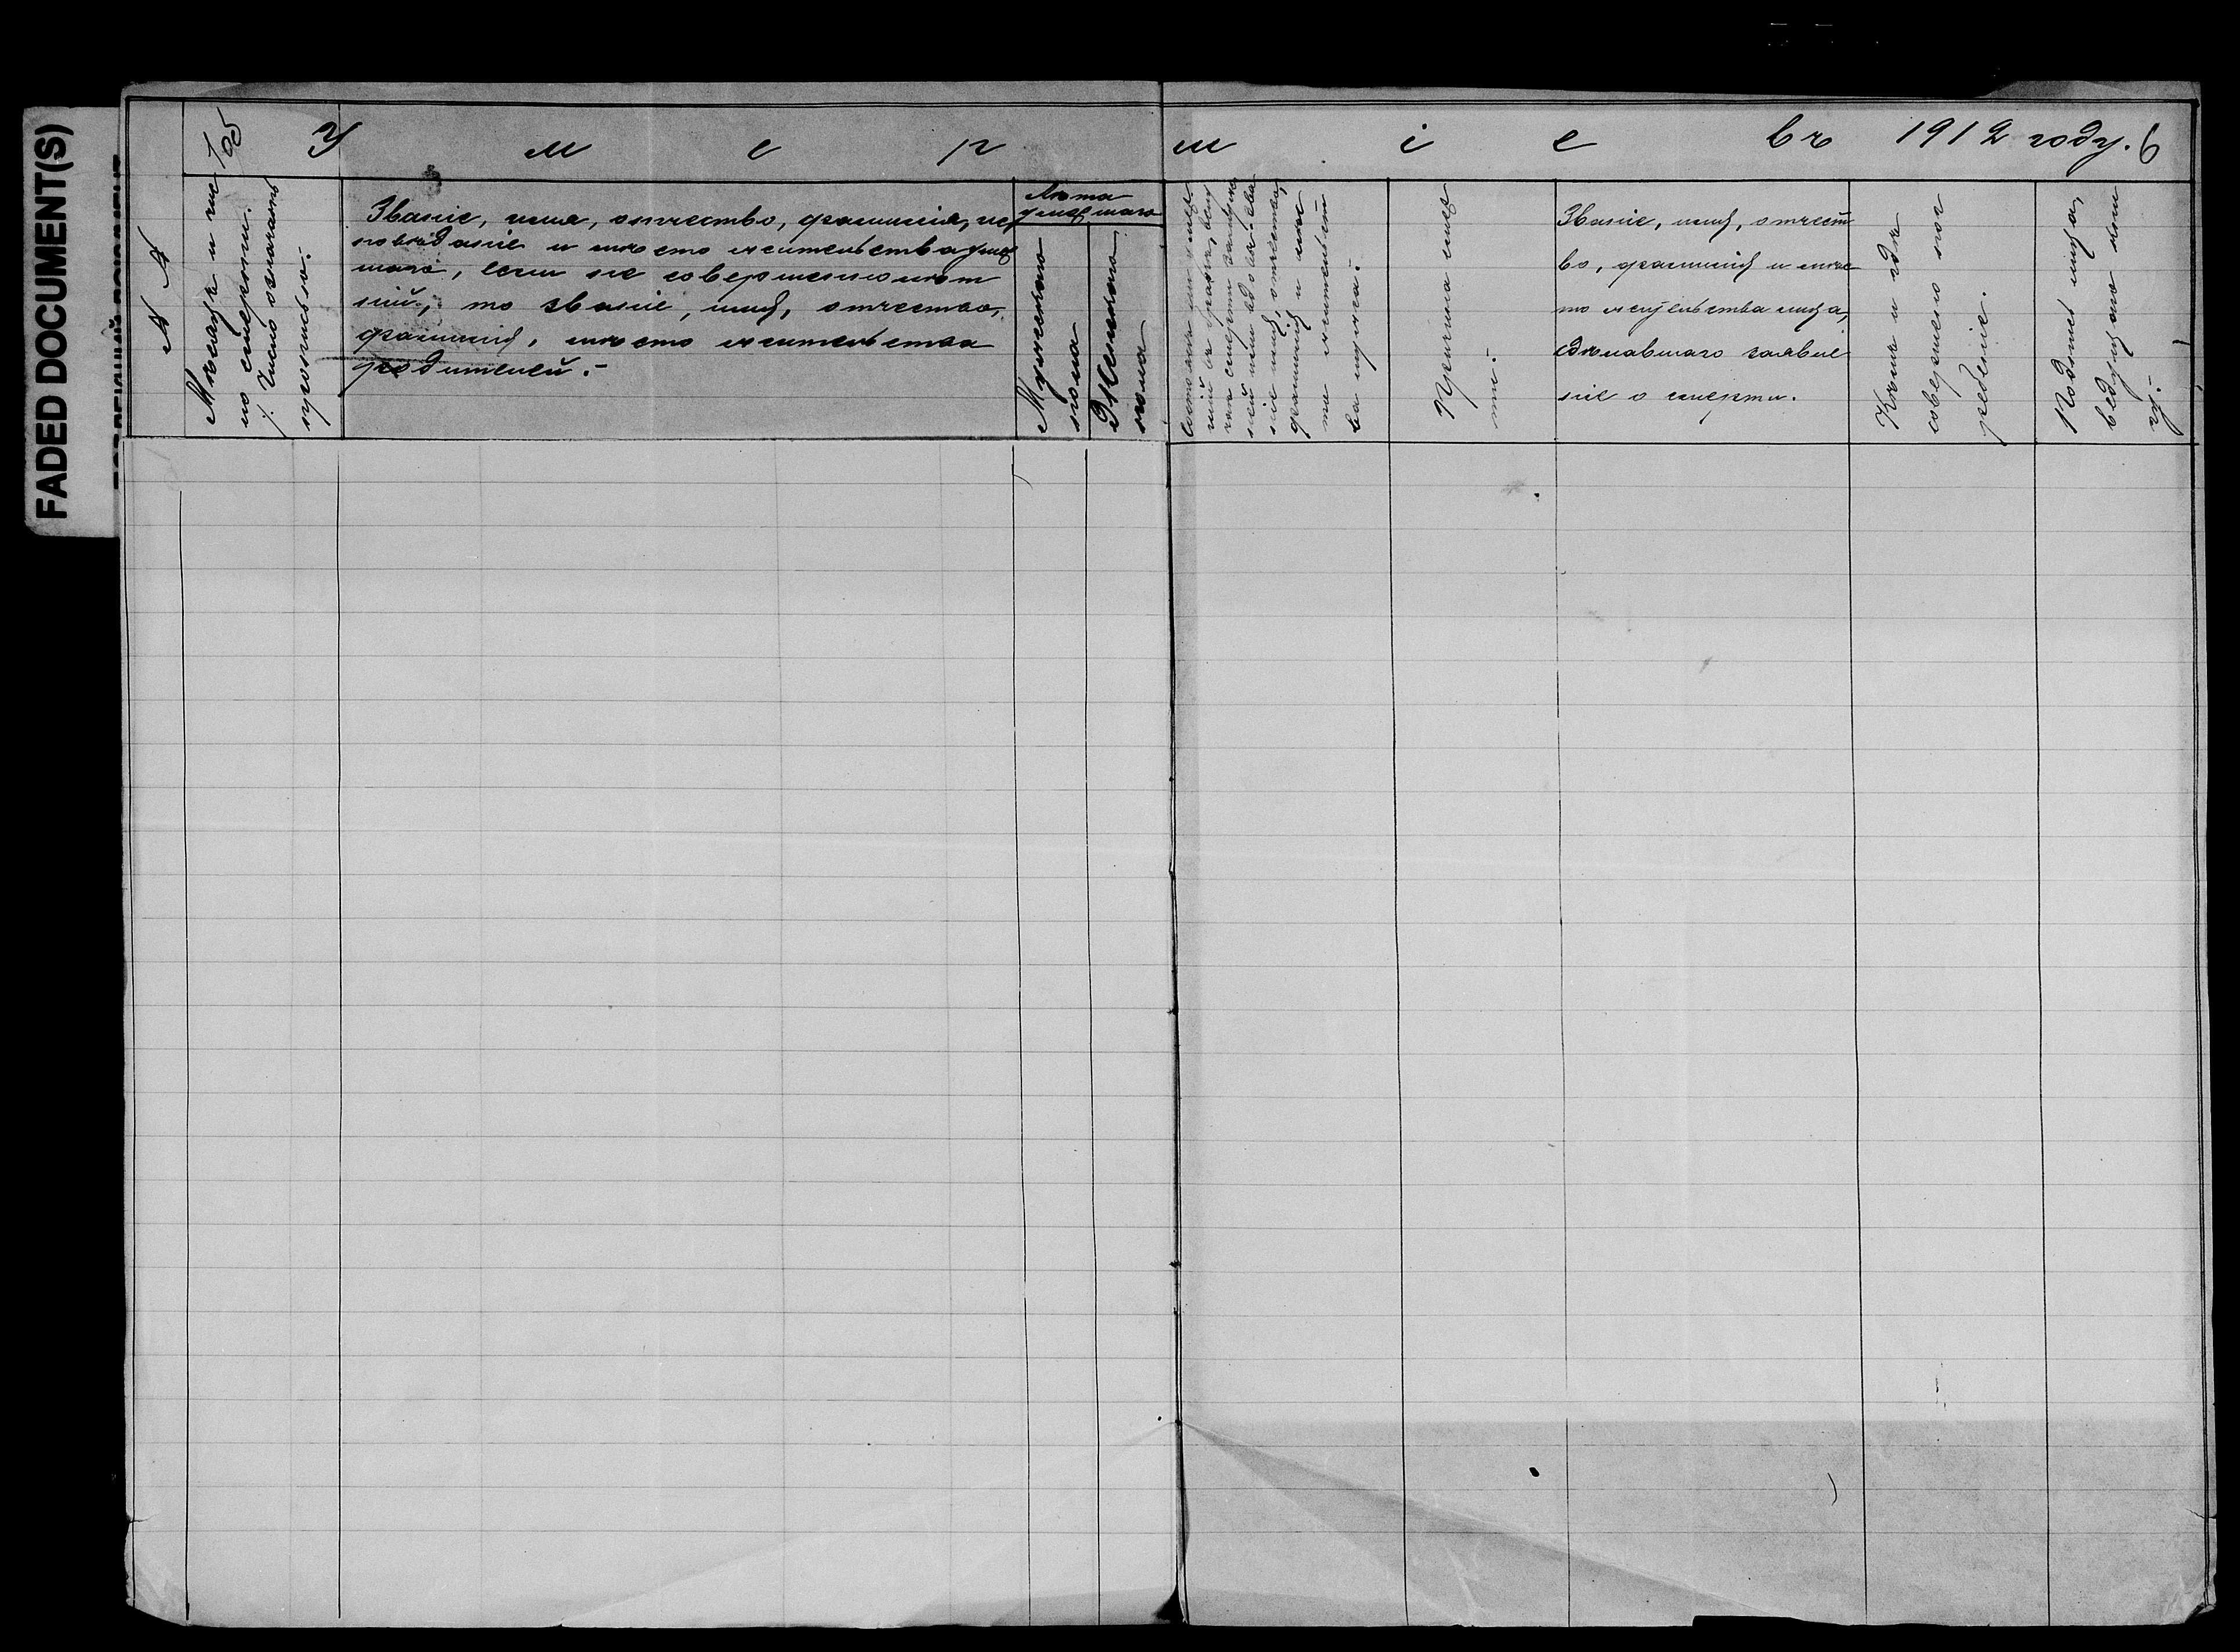 FADED DOCUMENT(S)
У м е р ш і е въ 1912 году. 6
165
№ №
Мѣсяцъ и чис
ло смерти.
/. Число означать
прописью.
Званіе, имя, отчество, фамилія, ис
повѣданіе и мѣсто жительства умер
шаго, если не совершеннолѣт
ній, то званіе, имя, отчество,
фамилія, мѣсто жительства
родителей.-
Лѣта
умершаго
Мужского
пола
Женскаго
пола
ла мужа.-
Причина смер
ти.-
Званіе, имя, отчест
во, фамилія и мѣс
то жительства лица,
сдѣлавшаго заявле
ніе о смерти.
Кѣмъ и гдѣ
совершено пог
ребеніе.
Подпись лица,
ведущаго кни
гу.-